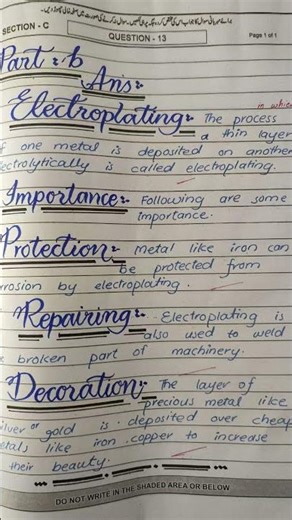 SECTION - C
QUESTION - 13
Page 1 of 1
Part :- b
Ans:-
in which
Electroplating:- The process
a thin layer
of one metal is deposited on another
electrolytically is called electroplating.
Importance:- Following are some
importance.
Protection:- metal like iron can
be protected from
rrosion by electroplating.
Repairing:- Electroplating is
also used to weld
broken part of machinery.
Decoration:- The layer of
precious metal like
silver or gold is deposited over cheap
etals like iron, copper to increase
their beauty.
DO NOT WRITE IN THE SHADED AREA OR BELOW